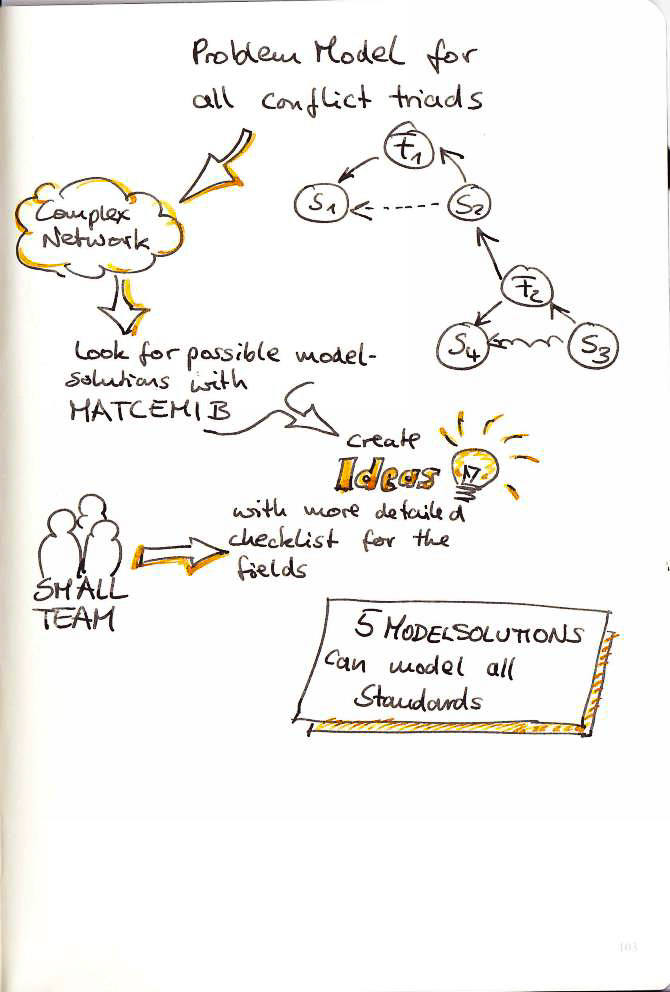 Problem Model for
all conflict triads
F1
S1
S2
F2
S4
S3
Complex
Network
Look for possible model-
solutions with
MATCEMIB
create
Ideas
with more detailed
checklist for the
fields
SMALL
TEAM
5 MODELSOLUTIONS
can model all
Standards
103